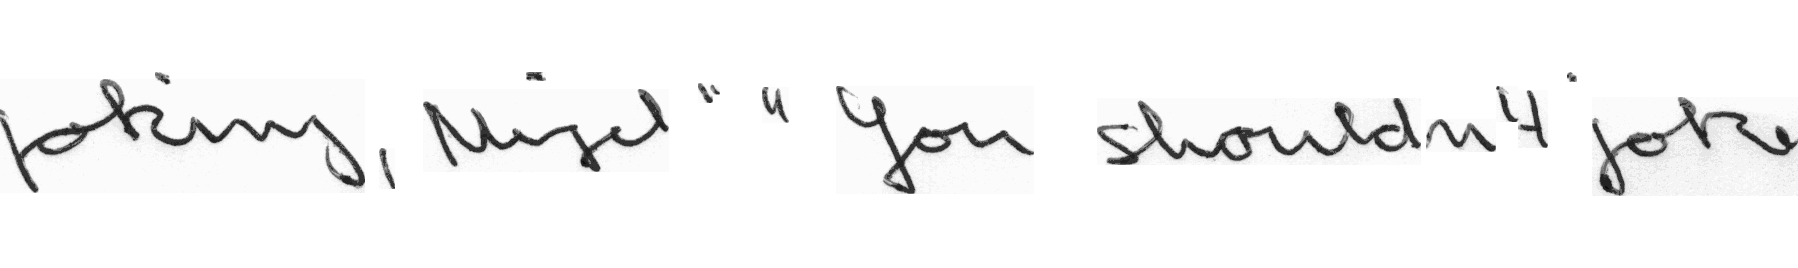 joking, Nigel" "You shouldn't joke